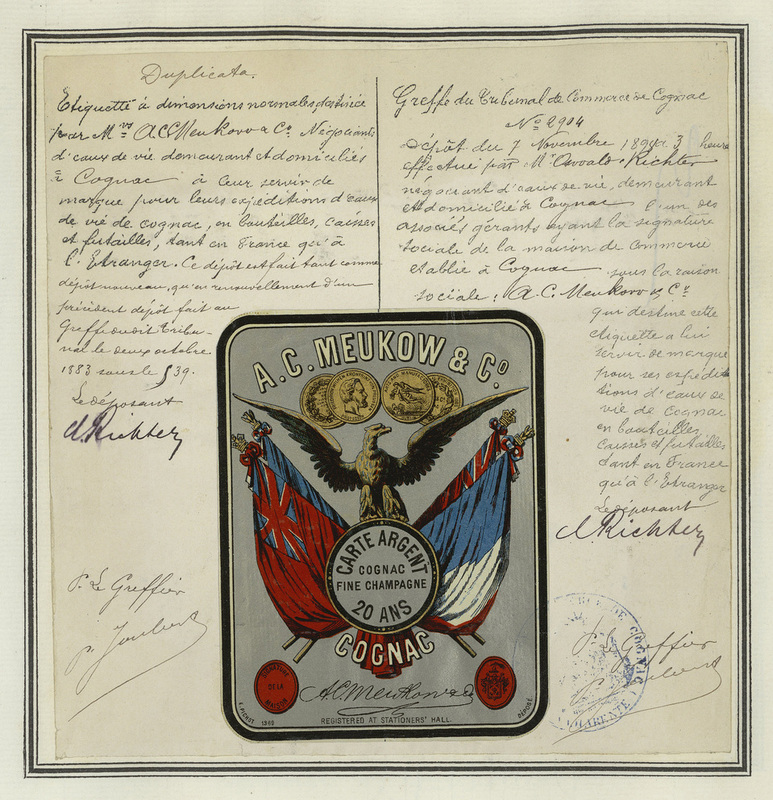 Duplicata.
Etiquette à dimensions normales destinée
par Mrs A.C. Meukow & Co Négociants
d'eaux de vie demeurant et domiciliés
à Cognac à leur servir de
marque pour leurs expéditions d'eaux
de vie de cognac, en bouteilles, caisses
et futailles, tant en France qu'à
l'Etranger. Ce dépôt est fait tant comme
dépôt nouveau, qu'en renouvellement d'un
précédent dépôt fait au
Greffe dudit Tribu-
nal le deux octobre
1883 sous le 539.
Le déposant
O. Richter
P. Le Greffier
P. Joubert
Greffe du Tribunal de Commerce de Cognac
No 2904
Dépôt du 7 Novembre 3 heures
effectué par Mr Oswald Richter
négociant d'eaux de vie, demeurant
et domicilié à Cognac l'un des
associés gérants ayant la signature
sociale de la maison de commerce
etablie à Cognac sous la raison
sociale: A.C. Meukow & Co
qui destine cette
etiquette a lui
servir de marque
pour ses expédi-
tions d'eaux de
vie de Cognac
en bouteilles
caisses et futailles
tant en France
qu'à l'Etranger
Le déposant
O. Richter
P. Le Greffier
P. Joubert
A.C. MEUKOW & Co
CARTE ARGENT
COGNAC
FINE CHAMPAGNE
20 ANS
COGNAC
SIGNATURE
DE LA
MAISON
A.C. Meukow & Co
REGISTERED AT STATIONERS' HALL.
DÉPOSÉ